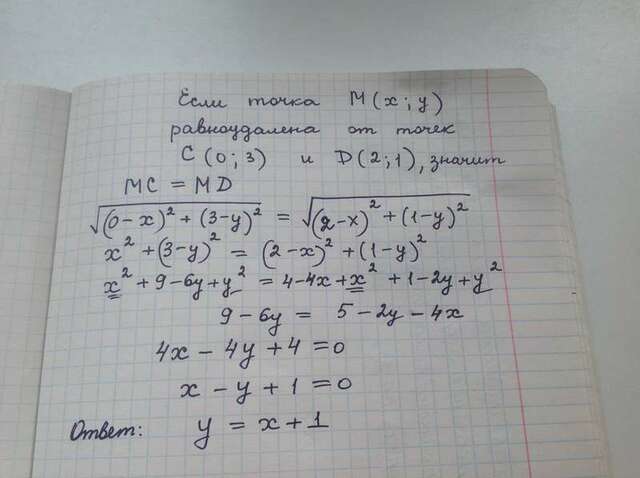 Если точка M(x; y)
равноудалена от точек
C(0; 3) и D(2; 1), значит
MC = MD
√((0-x)² + (3-y)²) = √((2-x)² + (1-y)²)
x² + (3-y)² = (2-x)² + (1-y)²
x² + 9 - 6y + y² = 4 - 4x + x² + 1 - 2y + y²
9 - 6y = 5 - 2y - 4x
4x - 4y + 4 = 0
x - y + 1 = 0
Ответ: y = x + 1